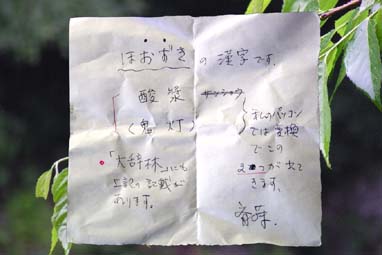 ほおずきの漢字です。
酸漿
(鬼灯)
私のパソコン
では変換
でこの
2つが出て
きます。
「大辞林」にも
上記の記載が
あります。
斎藤